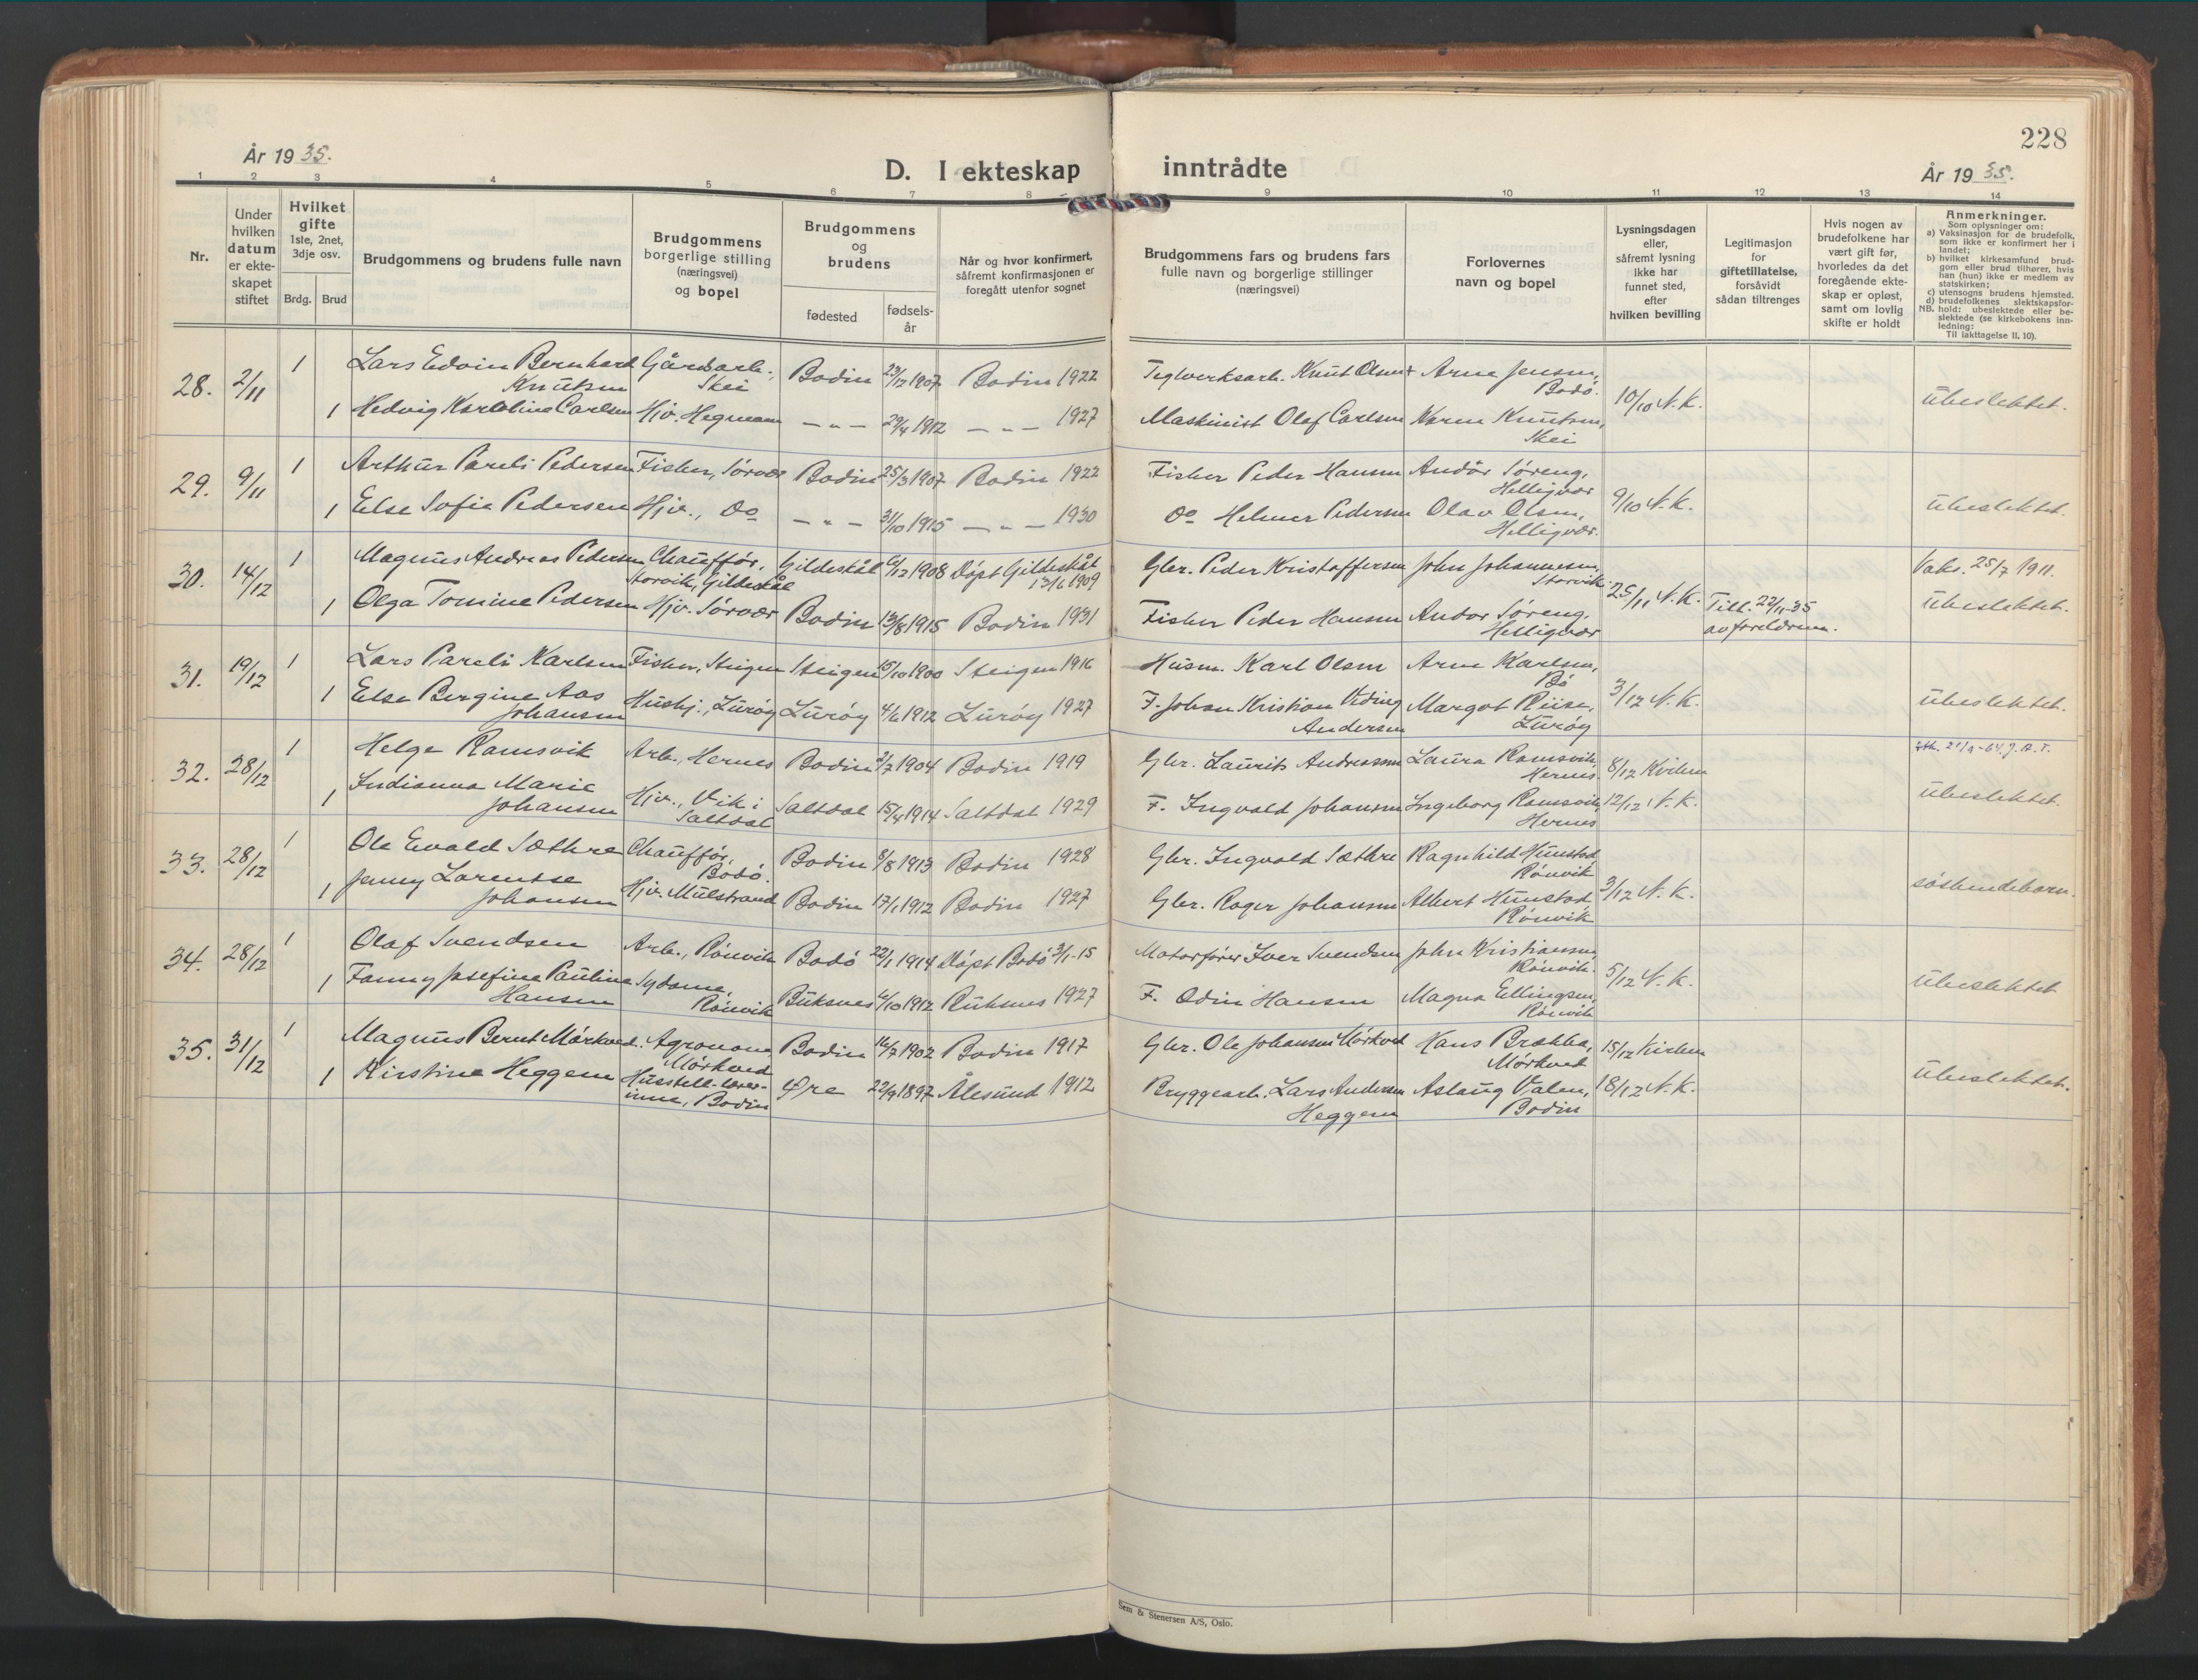 228
År 1935.
D. I ekteskap inntrådte
År 1935.
1 2 3 4 5 6 7 8 9 10 11 12 13 14
Nr.
Under hvilken datum er ekteskapet stiftet
Hvilket gifte 1ste, 2net, 3dje osv.
Brdg. Brud
Brudgommens og brudens fulle navn
Brudgommens borgerlige stilling (næringsvei) og bopel
Brudgommens og brudens
fødested
fødselsår
Når og hvor konfirmert, såfremt konfirmasjonen er foregått utenfor sognet
Brudgommens fars og brudens fars fulle navn og borgerlige stillinger (næringsvei)
Forlovernes navn og bopel
Lysningsdagen eller, såfremt lysning ikke har funnet sted, efter hvilken bevilling
Legitimasjon for giftetillatelse, forsåvidt sådan tiltrenges
Hvis nogen av brudefolkene har vært gift før, hvorledes da det foregående ekteskap er opløst, samt om lovlig skifte er holdt
Anmerkninger.
Som oplysninger om:
a) Vaksinasjon for de brudefolk, som ikke er konfirmert her i landet;
b) hvilket kirkesamfund brudgom eller brud tilhører, hvis han (hun) ikke er medlem av statskirken;
c) utensogns brudens hjemsted.
d) brudefolkenes slektskapsforhold: ubeslektede eller beslektede (se kirkebokens innledning:
NB.
Til iakttagelse II. 10).
28. 2/11 1 Lars Edvin Bernhard Knutsen Gårdsarb., Skei Bodin 23/12 1907 Bodin 1922 Teglverksarb. Knut Olsen + Arne Jensen, Bodø. 10/10 N.K. Ubeslektet.
1 Hedvig Karoline Carlsen Hjv. Hegmoen — " — 29/4 1912 — " — 1927 Maskinist Olaf Carlsen Karen Knutsen, Skei
29. 9/11 1 Arthur Pareli Pedersen Fisker, Sørvær Bodin 25/3 1907 Bodin 1922 Fisker Peder Hansen Andor Søreng, Helligvær 9/10 N.K. Ubeslektet.
1 Else Sofie Pedersen Hjv., Do — " — 31/10 1915 — " — 1930 Do Helmer Pedersen Olav Olsen, Helligvær.
30. 14/12 1 Magnus Andreas Pedersen Chauffør, Storvik, Gildeskål Gildeskål 6/12 1908 Døpt Gildeskål 13/6 1909 Gbr. Peder Kristoffersen John Johannesen, Storvik. 25/11 N.K. Vaks. 25/7 1911.
1 Olga Tomine Pedersen Hjv. Sørvær Bodin 13/8 1915 Bodin 1931 Fisker Peder Hansen Andor Søreng, Helligvær Till. 22/11-35 av foreldrene. Ubeslektet.
31. 19/12 1 Lars Pareli Karlsen Fisker, Steigen Steigen 15/10 1900 Steigen 1916 Husm. Karl Olsen Arne Karlsen, Bø 3/12 N.K. Ubeslektet.
1 Else Bergine Aas Johansen Hushj., Lurøy Lurøy 4/6 1912 Lurøy 1927 F. Johan Kristian Viding Andersen Margot Riise, Lurøy
32. 28/12 1 Helge Ramsvik Arb., Hernes Bodin 3/7 1904 Bodin 1919 Gbr. Laurits Andreassen Laura Ramsvik, Hernes. 8/12 Kirken
1 Indianna Marie Johansen Hjv., Vik i Saltdal Saltdal 15/4 1914 Saltdal 1929 F. Ingvald Johansen Ingeborg Ramsvik Hernes 12/12 N.K. Ubeslektet.
33. 28/12 1 Ole Evald Sæthre Chauffør, Bodø. Bodin 8/8 1913 Bodin 1928 Gbr. Ingvald Sæthre Ragnhild Hunstad, Rønvik 3/12 N.K. søskendebarn.
1 Jenny Lorentse Johansen Hjv. Mulstrand Bodin 17/1 1912 Bodin 1927 Gbr. Roger Johansen Albert Hunstad, Rønvik
34. 28/12 1 Olaf Svendsen Arb., Rønvik Bodø 22/1 1914 Døpt Bodø 3/1-15 Motorfører Iver Svendsen John Kristiansen, Rønvik. 5/12 N.K. Ubeslektet
1 Fanny Josefine Pauline Hansen Sydame, Rønvik Buksnes 6/10 1912 Buksnes 1927 F. Odin Hansen Magna Ellingsen, Rønvik
35. 31/12 1 Magnus Bernt Mørkved. Agronom Mørkved Bodin 16/7 1902 Bodin 1917 Gbr. Ole Johansen Mørkved Hans Brækka, Mørkved 15/12 Kirken
1 Kirstine Heggem Husstell-lærerinne, Bodin Øre 22/9 1897 Ålesund 1912 Bryggearb. Lars Andersen Heggem Aslaug Valen, Bodin 18/12 N.K. Ubeslektet.
Sem & Stenersen A/S, Oslo.